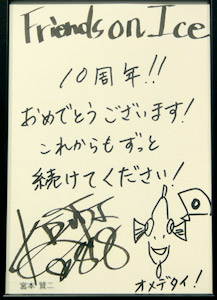 Friends on Ice
10周年!!
おめでとうございます!
これからもずっと
続けてください!
宮本 賢二
オメデタイ!